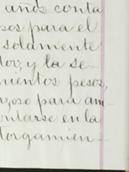 años conta
sos para el
solamente
tor; y la se-
mientos pesos,
rzoso para am-
entarse en la
torgamien-